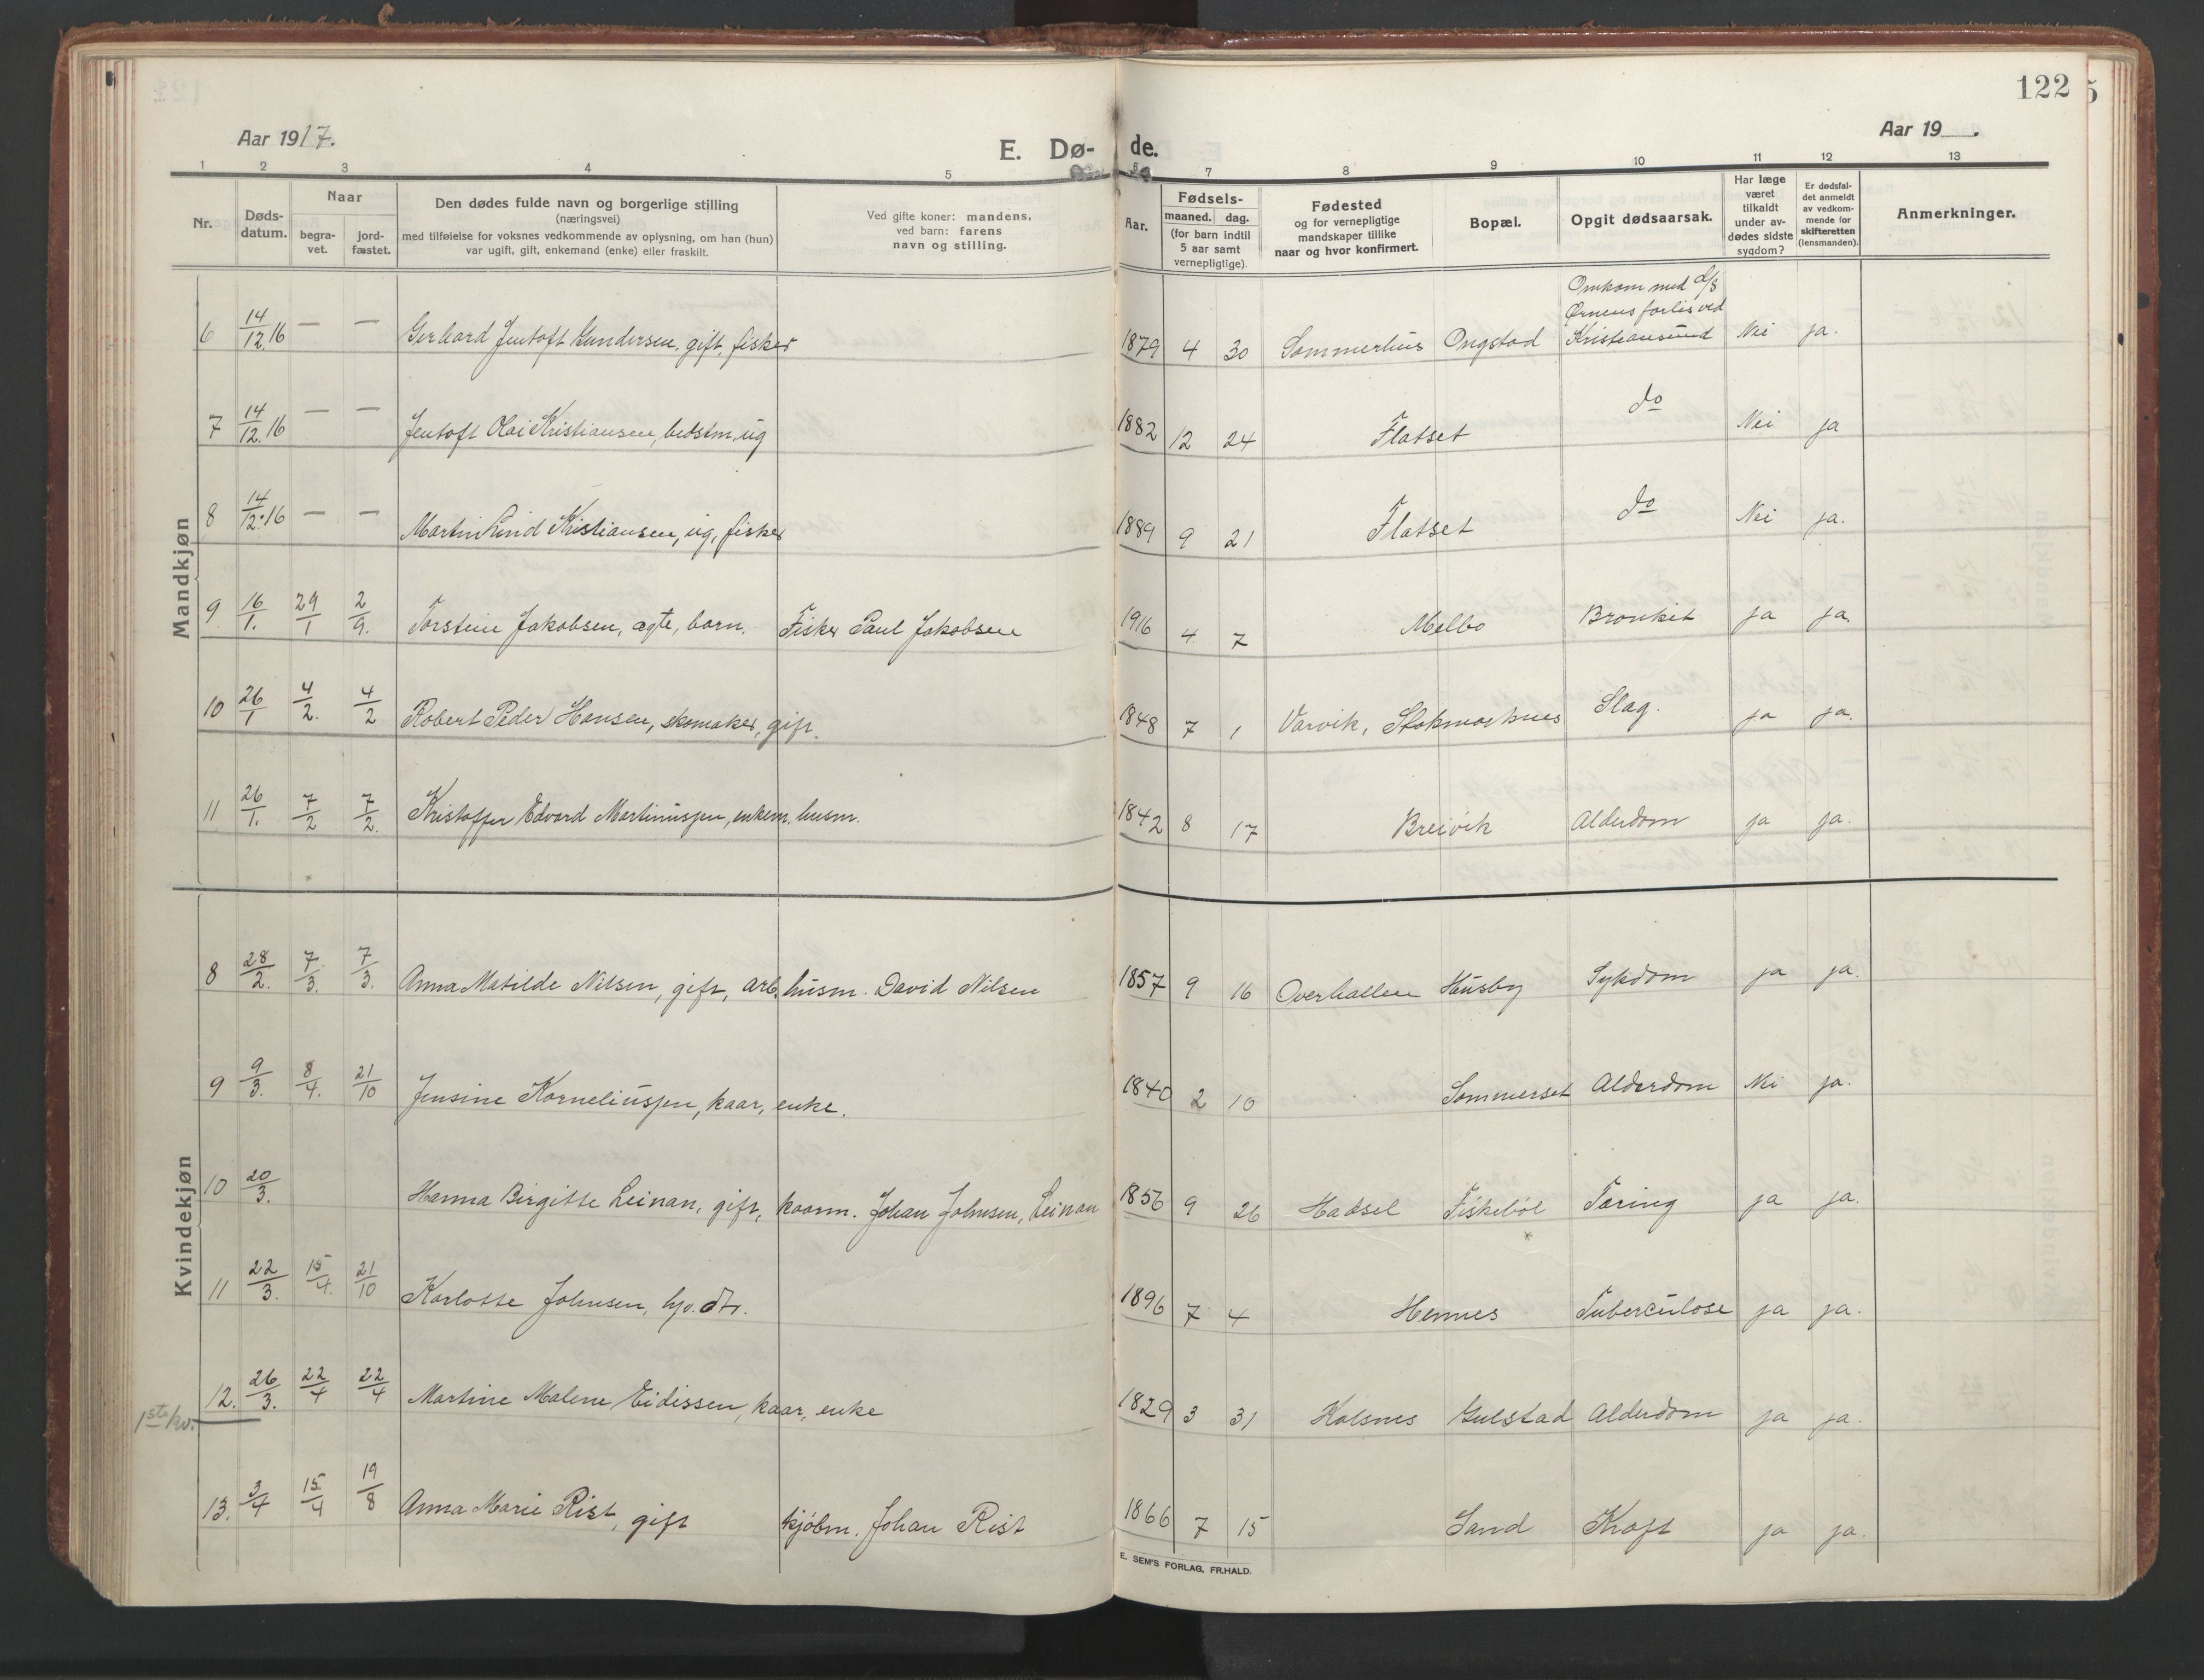 122
Aar 1917.
E. Dø-de.
Aar 19__.
1 2 3 4 5 6 7 8 9 10 11 12 13
Nr.
Døds-
datum.
Naar
begra-
vet.
jord-
fæstet.
Den dødes fulde navn og borgerlige stilling
(næringsvei)
med tilføielse for voksnes vedkommende av oplysning, om han (hun)
var ugift, gift, enkemand (enke) eller fraskilt.
Ved gifte koner: mandens,
ved barn: farens
navn og stilling.
Aar.
Fødsels-
maaned. dag.
(for barn indtil
5 aar samt
vernepligtige).
Fødested
og for vernepligtige
mandskaper tillike
naar og hvor konfirmert.
Bopæl.
Opgit dødsaarsak.
Har læge
været
tilkaldt
under av-
dødes sidste
sygdom?
Er dødsfal-
det anmeldt
av vedkom-
mende for
skifteretten
(lensmanden).
Anmerkninger.
Mandkjøn
6 14/12.16 — — Gerhard Jentoft Gundersen, gift, fisker 1879 4 30 Sommerhus Ongstad Omkom med d/s Ørnens forlis ved Kristiansund Nei ja.
7 14/12.16 — — Jentoft Olai Kristiansen, bedstm, ug 1882 12 24 Flatset do Nei ja
8 14/12.16 — — Martin Lind Kristiansen, ug, fisker 1889 9 21 Flatset do Nei ja.
9 16/1. 29/1 2/9. Torstein Jakobsen, ægte, barn. Fisker Paul Jakobsen 1916 4 7 Melbo Bronkit ja ja.
10 26/1 4/2. 4/2 Robert Peder Hansen, skomaker, gift. 1848 7 1 Varvik, Stokmarknes Slag. ja ja.
11 26/1. 7/2 7/2. Kristoffer Edvard Martinussen, enkem. husm. 1842 8 17 Breivik Alderdom ja ja.
Kvindekjøn
8 28/2. 7/3. 7/3. Anna Matilde Nilsen, gift, arb. husm. David Nilsen 1857 9 16 Overhallen Husby Sykdom ja ja.
9 9/3. 8/4. 21/10 Jensine Korneliussen, kaar, enke. 1840 2 10 Sommerset Alderdom Nei ja.
10 20/3. Hanna Birgitte Leinan, gift, kaarm. Johan Johnsen, Leinan 1856 9 26 Hadsel Fiskebøl Tæring ja ja.
11 22/3. 15/4. 21/10 Karlotte Johnsen, hjv. dtr. 1896 7 4 Hennes Tuberculose ja ja.
12. 26/3. 22/4 22/4 Martine Malene Eidissen, kaar, enke 1829 3 31 Kolsnes Gulstad Alderdom ja ja.
1ste/kv.
13. 3/4 15/4 19/8 Anna Marie Rist, gift kjøbm. Johan Rist 1866 7 15 Sand Kræft ja ja.
E. SEM'S FORLAG, FR.HALD.